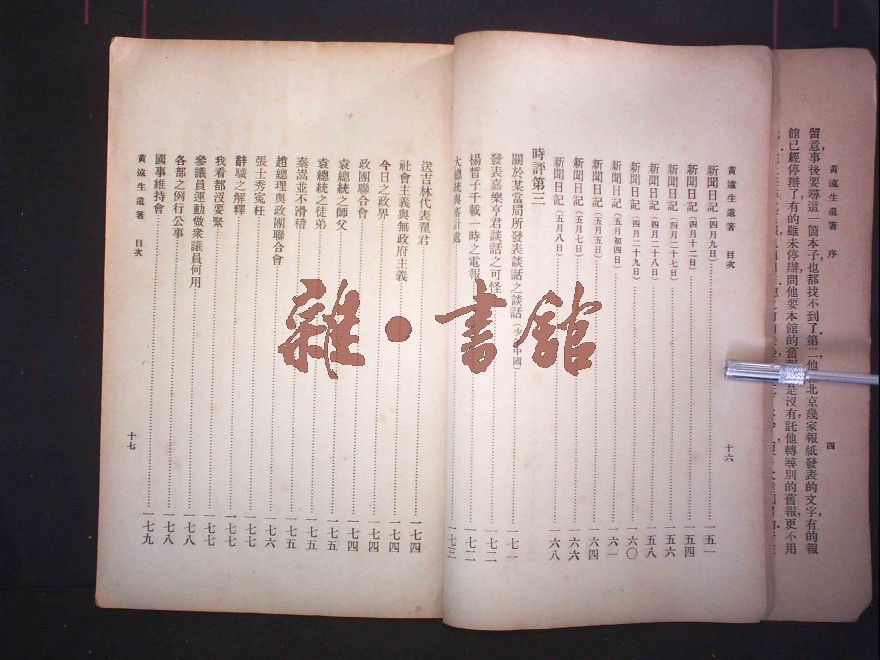 留意事後要尋這一箇本子也都找不到了第二他
北京幾家報紙發表的文字有的報
館已經停辦了有的雖未停辦問他要本館的舊
是沒有託他轉尋別的舊報更不用
黃遠生遺著 序
四
黃遠生遺著 目次
新聞日記(四月九日) 一五一
新聞日記(四月十二日) 一五四
新聞日記(四月二十七日) 一五六
新聞日記(四月二十八日) 一五八
新聞日記(四月二十九日) 一六〇
新聞日記(五月初四日) 一六一
新聞日記(五月五日) 一六四
新聞日記(五月七日) 一六六
新聞日記(五月八日) 一六八
時評第三
關於某當局所發表談話之談話 一七一
發表嘉樂亨君談話之可怪 一七二
楊晳子千載一時之電報 一七二
大總統與審計處 一七三
十六
送吉林代表 君 一七四
社會主義與無政府主義 一七四
今日之政界 一七四
政團聯合會 一七四
袁總統之師父 一七五
袁總統之徒弟 一七五
秦嵩並不滑稽 一七五
趙總理與政團聯合會 一七六
張士秀寃枉 一七七
辭職之解釋 一七七
我看都沒要緊 一七七
參議員運動做衆議員何用 一七七
各部之例行公事 一七八
國事維持會 一七九
黃遠生遺著 目次
十七
雜·書館